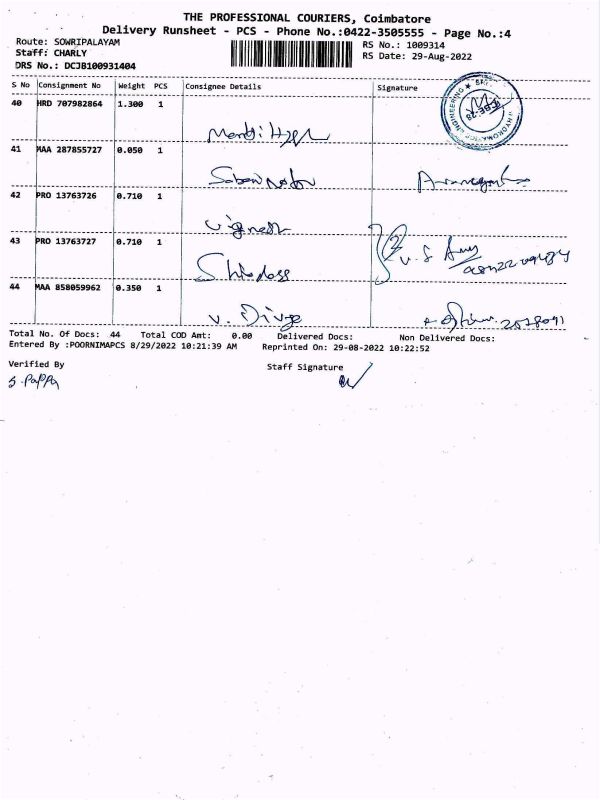 THE PROFESSIONAL COURIERS, Coimbatore
Delivery Runsheet - PCS - Phone No.:0422-3505555 - Page No.:4
Route: SOWRIPALAYAM
RS No.: 1009314
Staff: CHARLY
RS Date: 29-Aug-2022
DRS No.: DCJB100931404
S No Consignment No Weight PCS Consignee Details Signature
40 HRD 707982864 1.300 1
41 MAA 287855727 0.050 1
42 PRO 13763726 0.710 1
Vignesh
43 PRO 13763727 0.710 1
Shivdass
44 MAA 858059962 0.350 1
V. Divya
Total No. Of Docs: 44 Total COD Amt: 0.00 Delivered Docs: Non Delivered Docs:
Entered By :POORNIMAPCS 8/29/2022 10:21:39 AM Reprinted On: 29-08-2022 10:22:52
Verified By Staff Signature
S. Pappa